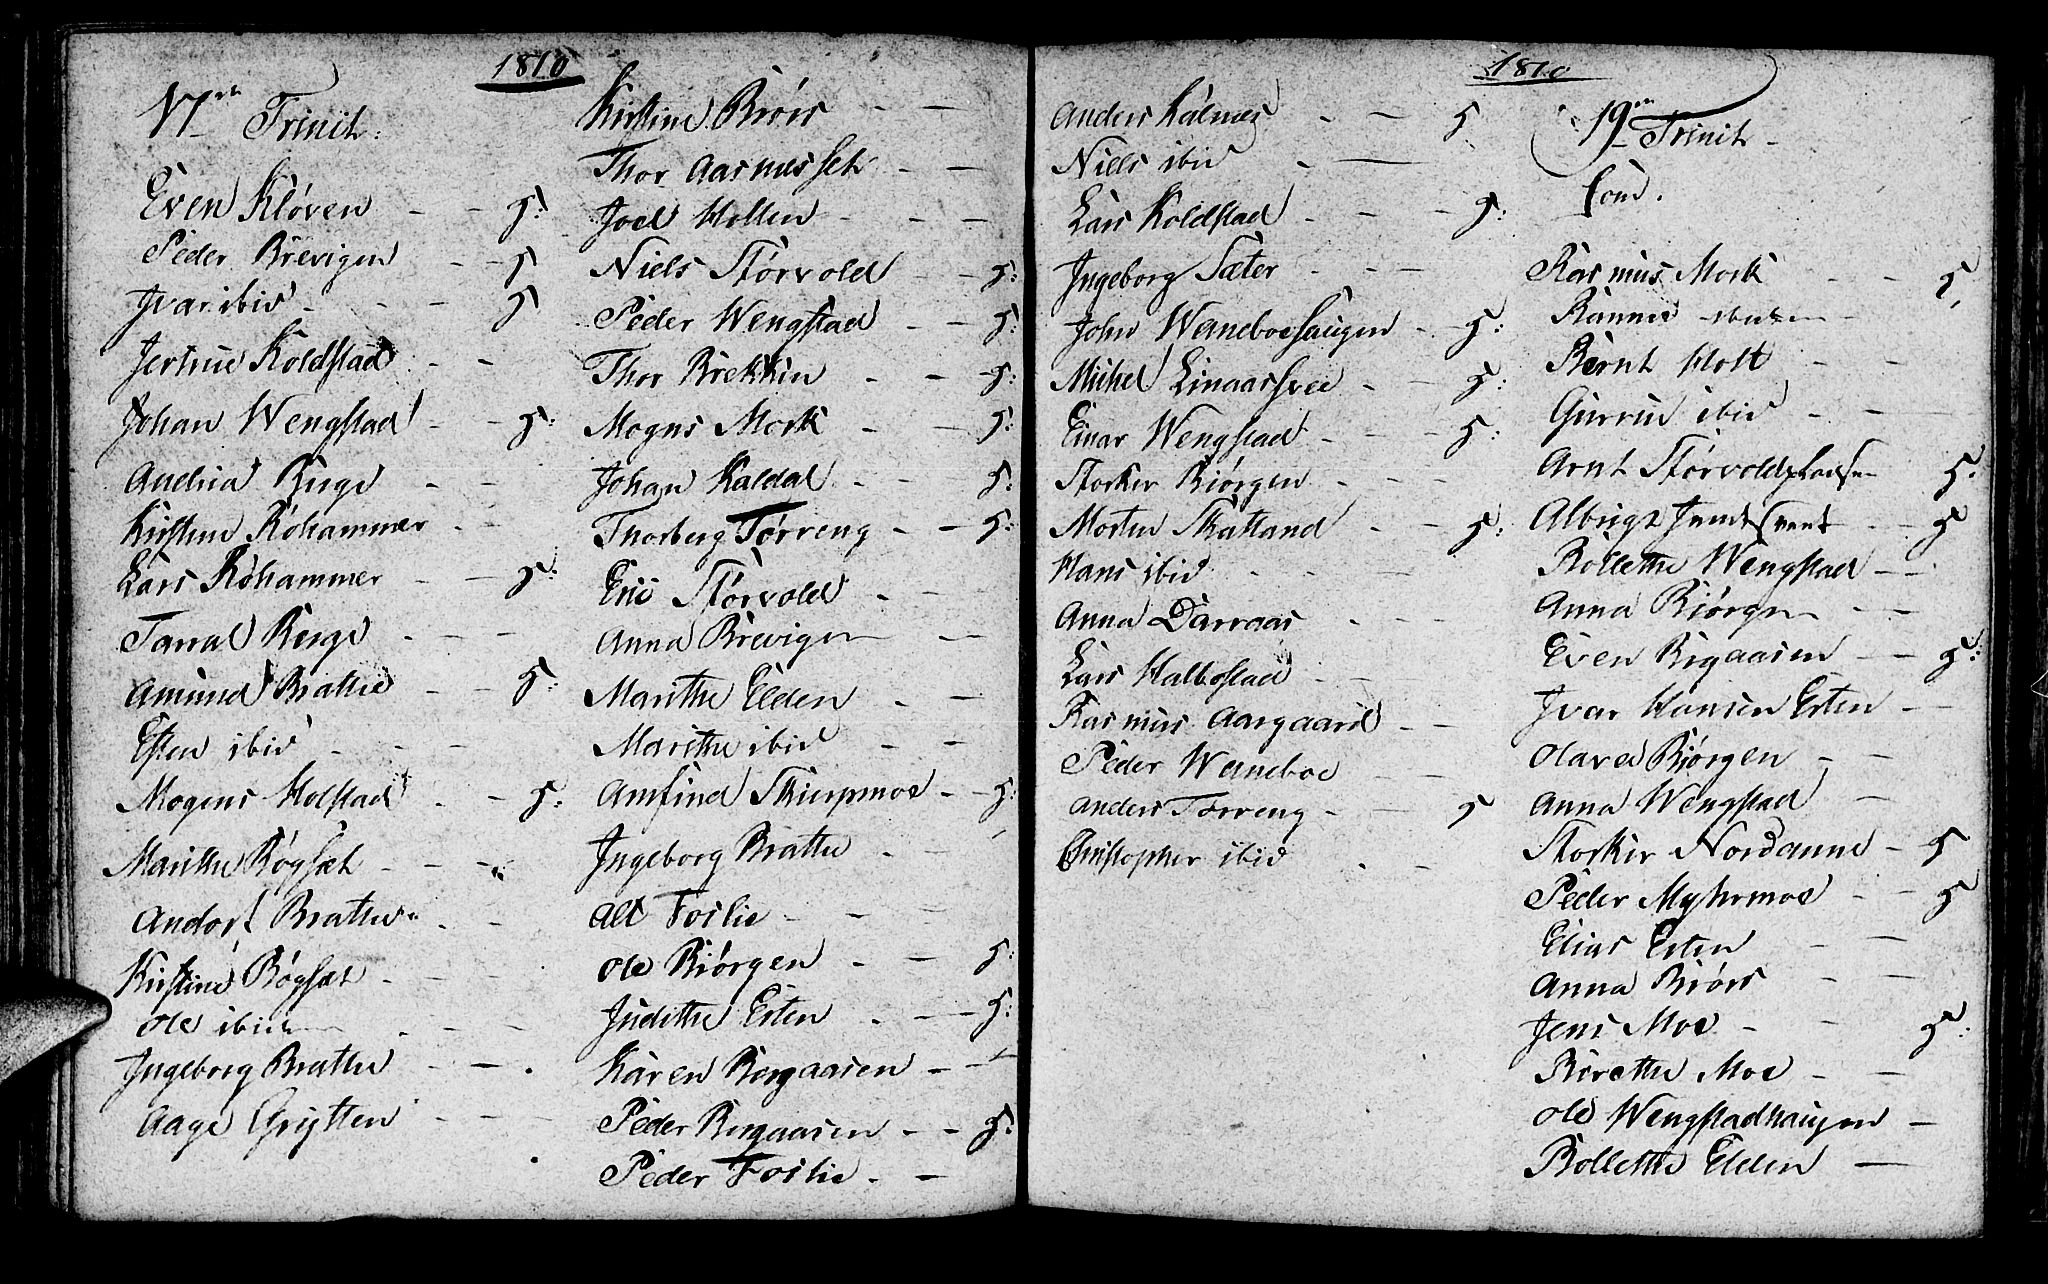 1810
17de Trinit:
Even Kløven - - 5:
Peder Brevigen - - 5
Ivar ibid - - - 5
Jertrue Koldstad - -
Johan Wengstad - - 5:
Andrea Berge - -
Kirstine Røhammer - -
Lars Røhammer - - 5:
Tarral Berge - - -
Amund Brattie - - 5:
Esten ibid - - -
Mogens Holstad - - 5:
Marithe Røgsæt - -
Andor Brattie - -
Kirstine Røgsæt - - -
Ole ibid - - -
Ingeborg Brattie - -
Aage Grytten - - -
Kirstine Biørs - -
Thor Aasmusset - -
Joel Hollen - - -
Niels Størvold - - 5:
Peder Wengstad - - 5:
Thor Brekkin - - 5:
Mogns Mork - - 5:
Johan Kaldal - - 5:
Thorberg Tørreng - - 5:
Eric Størvold - -
Anna Brevigen - -
Marithe Elden - -
Marithe ibid - -
Amfind Skierpmoe - - 5:
Ingeborg Brattie - -
Alt Foslie - - -
Ole Biørgen - - 5:
Judithe Esten - - 5:
Karen Bergaasen - -
Peder Bergaasen - - 5:
Peder Foslie - -
1810
Anders Kalnes - - 5
Niels ibid - -
Lars Koldstad - - - 5:
Ingeborg Sæter - - -
John Werneboehaugen - - 5:
Michel Linaassvee - - 5:
Einar Wengstad - - - 5:
Storker Biørgen - - -
Morten Skatland - - 5:
Hans ibid - - -
Anna Darraas - - -
Lars Halbostad - -
Rasmus Aargaard - -
Peder Werneboe - -
Anders Tørreng - - 5
Christopher ibid - -
19de Trinit -
Com.
Rasmus Mork - - 5
Rannei ibidem -
Bernt Holt - -
Gurrui ibid - - -
Arnt Størvoldpladsen 5:
Albrigt - - 5
Bollethe Wengstad - -
Anna Biørgen - -
Even Bergaasen - - 5:
Ivar Hansen Esten - -
Olava Biørgen - -
Anna Wengstad -
Storker Nordaune - 5
Peder Myhrmoe - - 5
Elias Esten - -
Anna Biørs - -
Jens Moe - - 5:
Berethe Moe - -
Ole Wengstadhaugen -
Bollethe Elden -